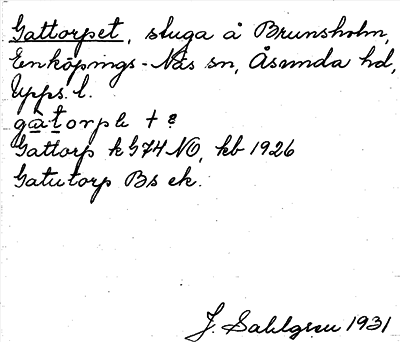 Gattorpet, stuga å Brunsholm,
Enköpings-Näs sn, Åsunda hd,
Upps. l.
gàtorpe + ?
Gattorp k G74 NO, kb 1926
Gatutorp Bs ek.
J. Sahlgren 1931